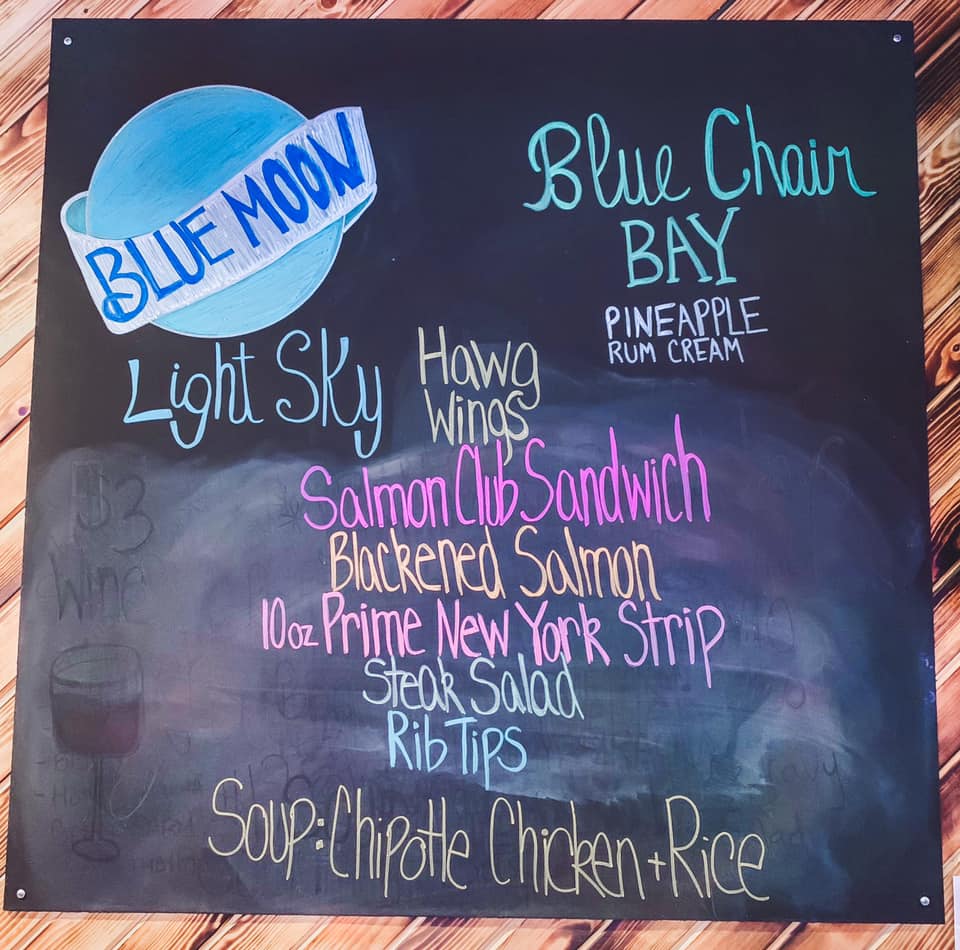 BLUE MOON
Light Sky
Blue Chair
BAY
PINEAPPLE
RUM CREAM
Hawg
Wings
Salmon Club Sandwich
Blackened Salmon
10oz Prime New York Strip
Steak Salad
Rib Tips
Soup: Chipotle Chicken + Rice
$3
Wine